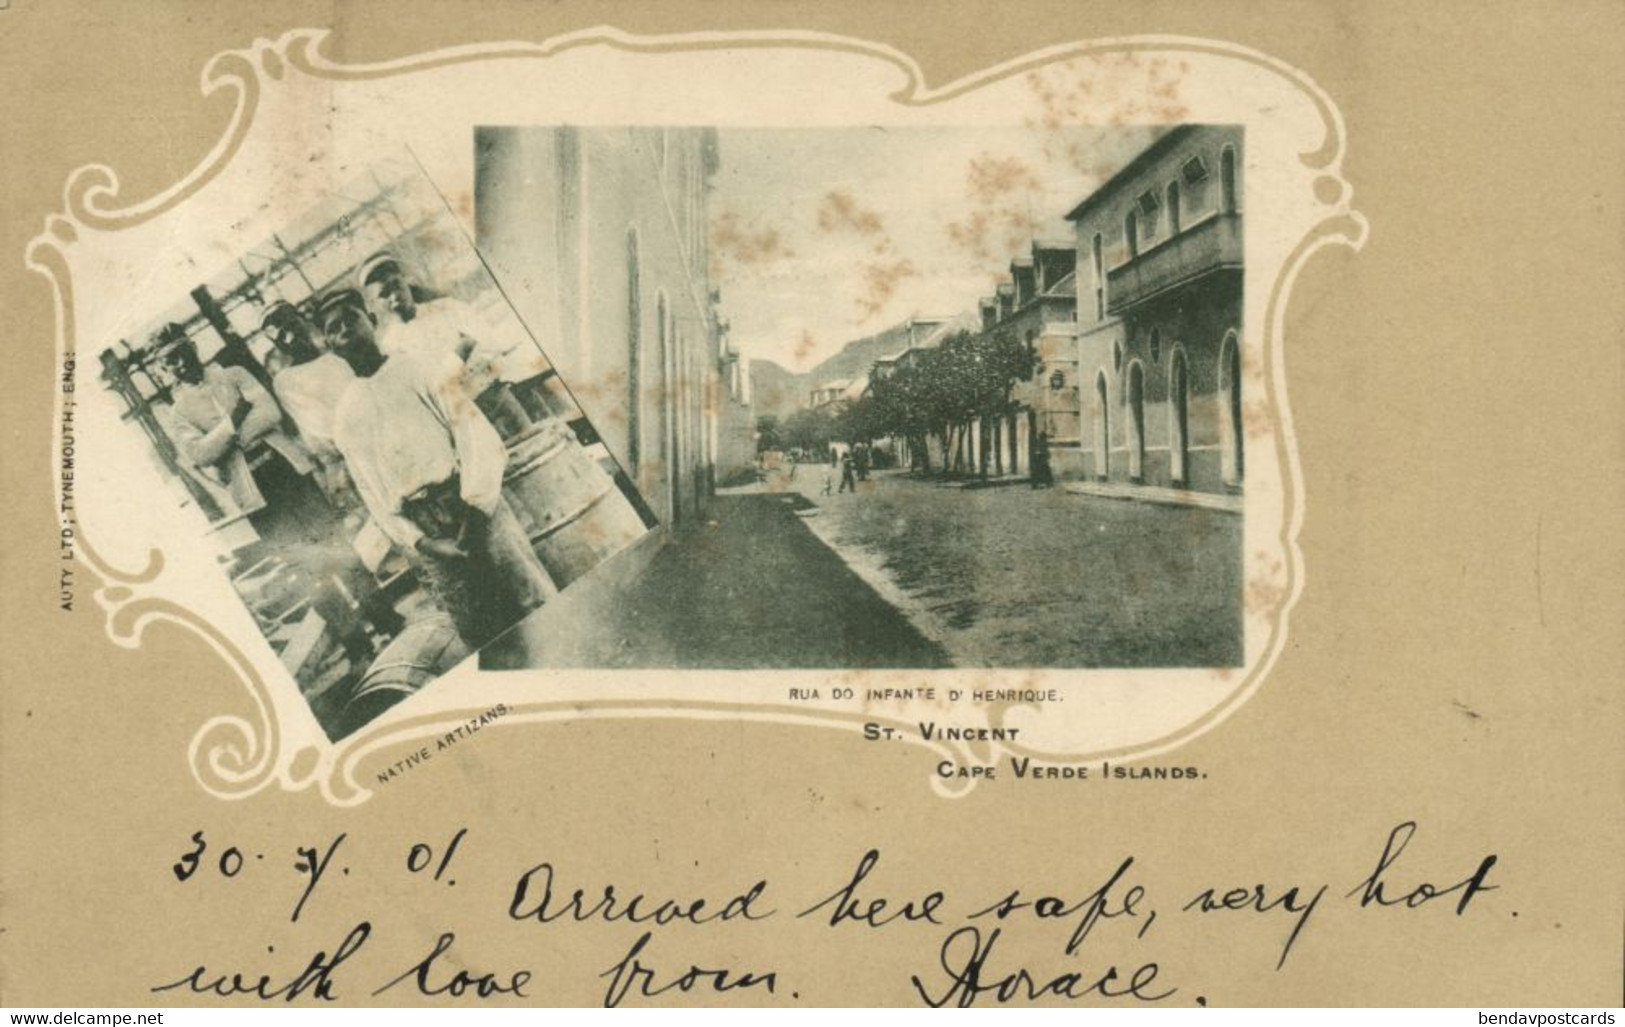 AUTY LTD; TYNEMOUTH; ENG:
NATIVE ARTIZANS.
RUA DO INFANTE D' HENRIQUE.
ST. VINCENT
CAPE VERDE ISLANDS.
30. 7. 01.
Arrived here safe, very hot.
with love from. Horace.
www.delcampe.net
bendavpostcards